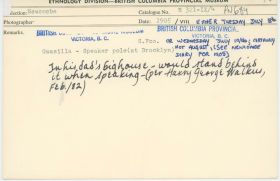 ETHNOLOGY DIVISION—BRITISH COLUMBIA PROVINCIAL MUSEUM
Section: Newcombe
Catalogue No.
Photographer
Date: 1905 / VIII EITHER TUESDAY JULY 18th
BRITISH COLUMBIA PROVINCIAL MUSEUM
VICTORIA, B.C.
OR WEDNESDAY JULY 19th; CERTAINLY
NOT AUGUST (SEE NEWCOMBE
DIARY FOR 1905)
Guasilla - Speaker pole(at Brooklyn)
In his dad's bighouse - would stand behind
it when speaking - (per Henry George Walkus,
Feb./82)